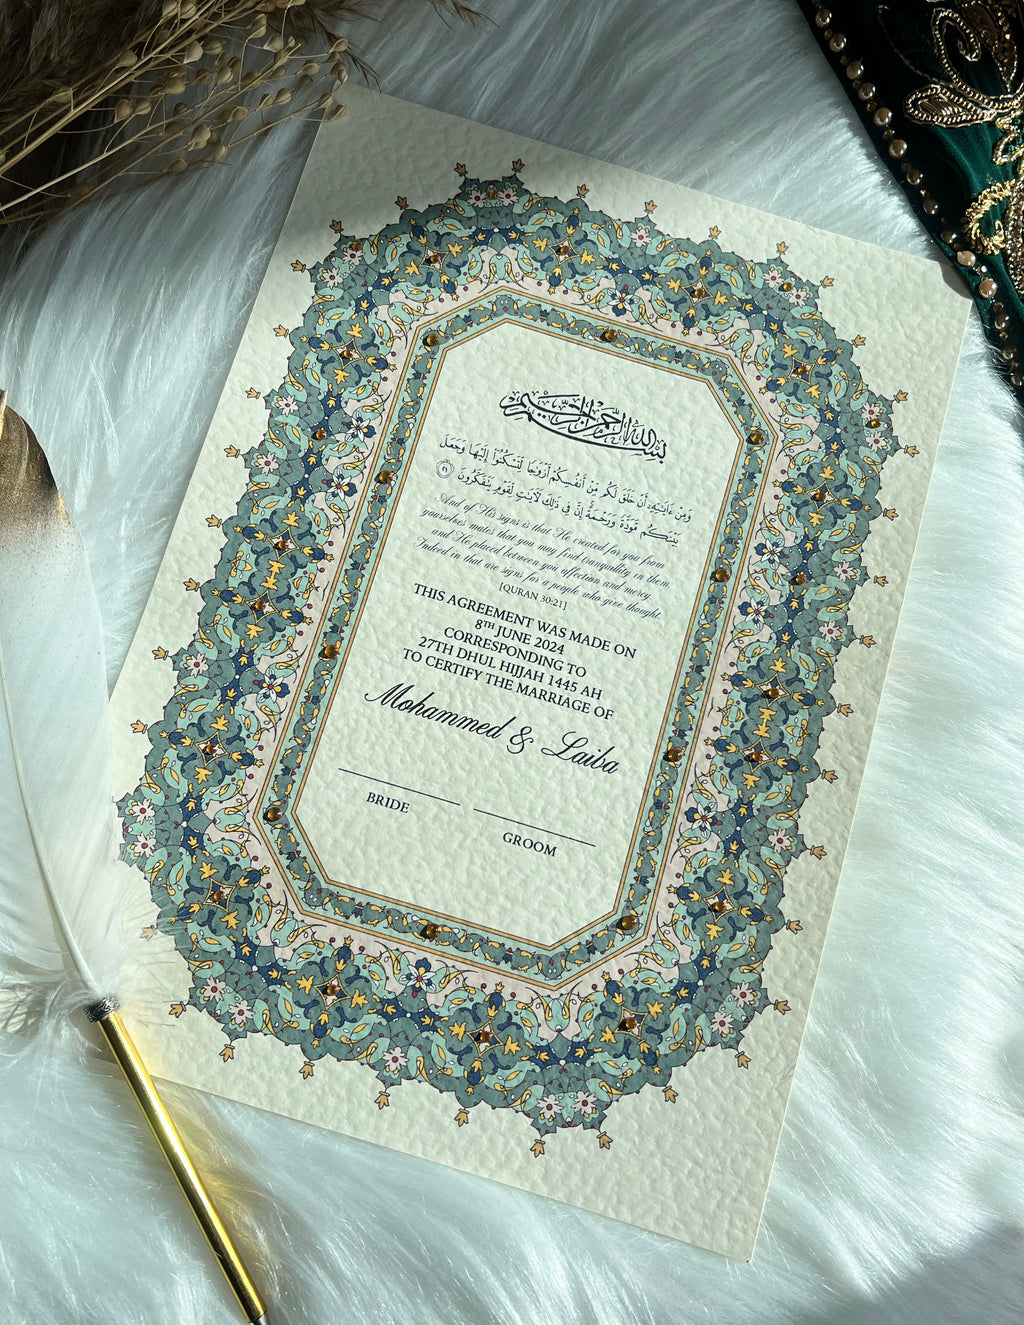 بسم الله الرحمن الرحيم
وَمِنْ ءَايَٰتِهِۦٓ أَنْ خَلَقَ لَكُم مِّنْ أَنفُسِكُمْ أَزْوَٰجًا لِّتَسْكُنُوٓا۟ إِلَيْهَا وَجَعَلَ
بَيْنَكُم مَّوَدَّةً وَرَحْمَةً إِنَّ فِى ذَٰلِكَ لَءَايَٰتٍ لِّقَوْمٍ يَتَفَكَّرُونَ ٢١
And of His signs is that He created for you from
yourselves mates that you may find tranquility in them,
and He placed between you affection and mercy.
Indeed in that are signs for a people who give thought.
[QURAN 30:21]
THIS AGREEMENT WAS MADE ON
8TH JUNE 2024
CORRESPONDING TO
27TH DHUL HIJJAH 1445 AH
TO CERTIFY THE MARRIAGE OF
Mohammed & Laiba
BRIDE
GROOM